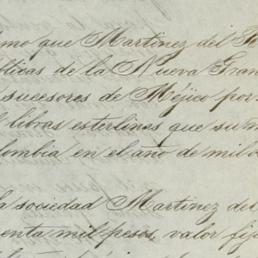 mo que Martinez del
blicas de la Nueva Gran
sucesores de Méjico por
libras esterlinas que su
lombia en el año de mil o
la sociedad Martinez del
enta mil pesos, valor fij